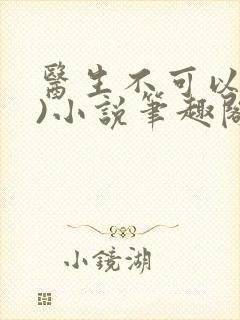 醫生不可以
)小說筆趣閣
小鏡湖